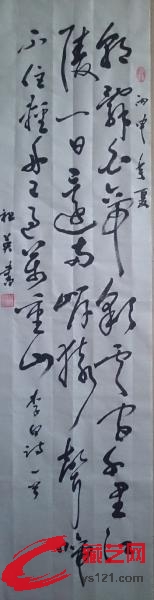 丙申春夏
朝辞白帝彩云间千里江
陵一日还两岸猿声啼
不住轻舟已过万重山 李白诗一首
祖英书
艺网
ys121.com